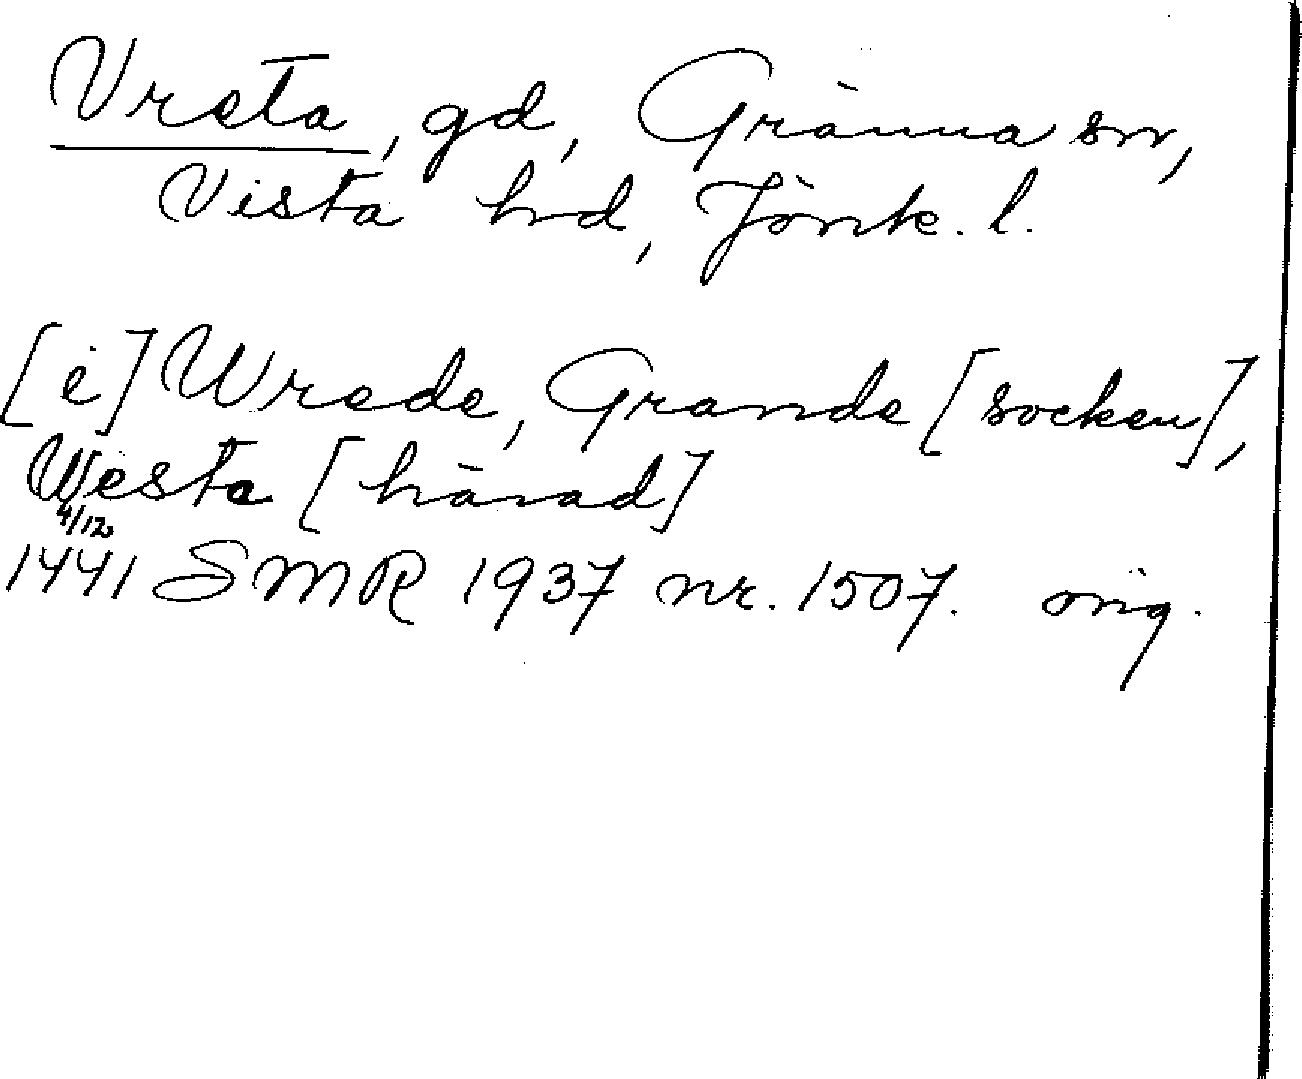 Vreta, gd, Gränna sn,
Vista hd, Jönk. l.
[i] Wrede, Grande [socken],
Westa [härad]
4/12
1441 SMR 1937 nr. 1507. orig.